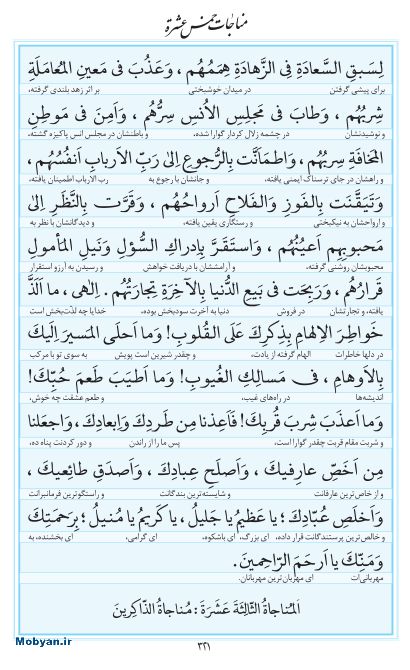 مناجات خمس عشرة
لِسَبقِ السَّعادَةِ فِی الزَّهادَةِ هِمَمُهُم ، وَعَذُبَ فی مَعینِ المُعامَلَةِ
برای پیشی گرفتن در میدان خوشبختی بر اثر زهد بلندی گرفته،
شِربُهُم ، وَطابَ فی مَجلِسِ الاُنسِ سِرُّهُم ، وَاَمِنَ فی مَوطِنِ
و نوشیدنشان در چشمه زلال کردار گوارا شده، و باطنشان در مجلس انس پاکیزه گشته،
المَخافَةِ سِربُهُم ، وَاطمَاَنَّت بِالرُّجوعِ اِلی رَبِّ الاَربابِ اَنفُسُهُم ،
و راهشان در جای ترسناک ایمنی یافته، و جانشان با رجوع به رب الارباب اطمینان یافته،
وَتَیَقَّنَت بِالفَوزِ وَالفَلاحِ اَرواحُهُم ، وَقَرَّت بِالنَّظَرِ اِلی
و ارواحشان به نیکبختی و رستگاری یقین یافته، و دیدگانشان با نظر به
مَحبوبِهِم اَعیُنُهُم ، وَاستَقَرَّ بِاِدراکِ السُّؤلِ وَنَیلِ المَأمولِ
محبوبشان روشنی گرفته، و آرامششان با دریافت خواهش و رسیدن به آرزو استقرار
قَرارُهُم ، وَرَبِحَت فی بَیعِ الدُّنیا بِالآخِرَةِ تِجارَتُهُم . اِلٰهی ، ما اَلَذَّ
یافته، و تجارتشان در فروش دنیا به آخرت سودبخش بوده. خدایا چه لذت‌بخش است
خَواطِرَ الاِلهامِ بِذِکرِکَ عَلَی القُلوبِ! وَما اَحلَی المَسیرَ اِلَیکَ
در دلها خاطرات الهام گرفته از یادت، و چقدر شیرین است پویش به سوی تو با مرکب
بِالاَوهامِ ، فی مَسالِکِ الغُیوبِ! وَما اَطیَبَ طَعمَ حُبِّکَ!
اندیشه‌ها در راه‌های غیب، و طعم عشقت چه خوش،
وَما اَعذَبَ شِربَ قُربِکَ! فَاَعِذنا مِن طَردِکَ وَاِبعادِکَ ، وَاجعَلنا
و شربت مقام قربت چقدر گوارا است، پس ما را از راندن و دور کردنت پناه ده،
مِن اَخَصِّ عارِفیکَ ، وَاَصلَحِ عِبادِکَ ، وَاَصدَقِ طائِعیکَ ،
و از خاص‌ترین عارفانت و شایسته‌ترین بندگانت و راستگوترین فرمانبرانت
وَاَخلَصِ عُبّادِکَ ؛ یا عَظیمُ یا جَلیلُ ، یا کَریمُ یا مُنیلُ ؛ بِرَحمَتِکَ
و خالص‌ترین پرستندگانت قرار داده، ای بزرگ، ای باشکوه، ای گرامی، ای بخشنده، به
وَمَنِّکَ یا اَرحَمَ الرّاحِمینَ.
مهربانی‌ات ای مهربان‌ترین مهربانان.
اَلمُناجاةُ الثّالِثَةَ عَشَرَةَ : مُناجاةُ الذّاکِرینَ
۳۲۱
Mobyan.ir